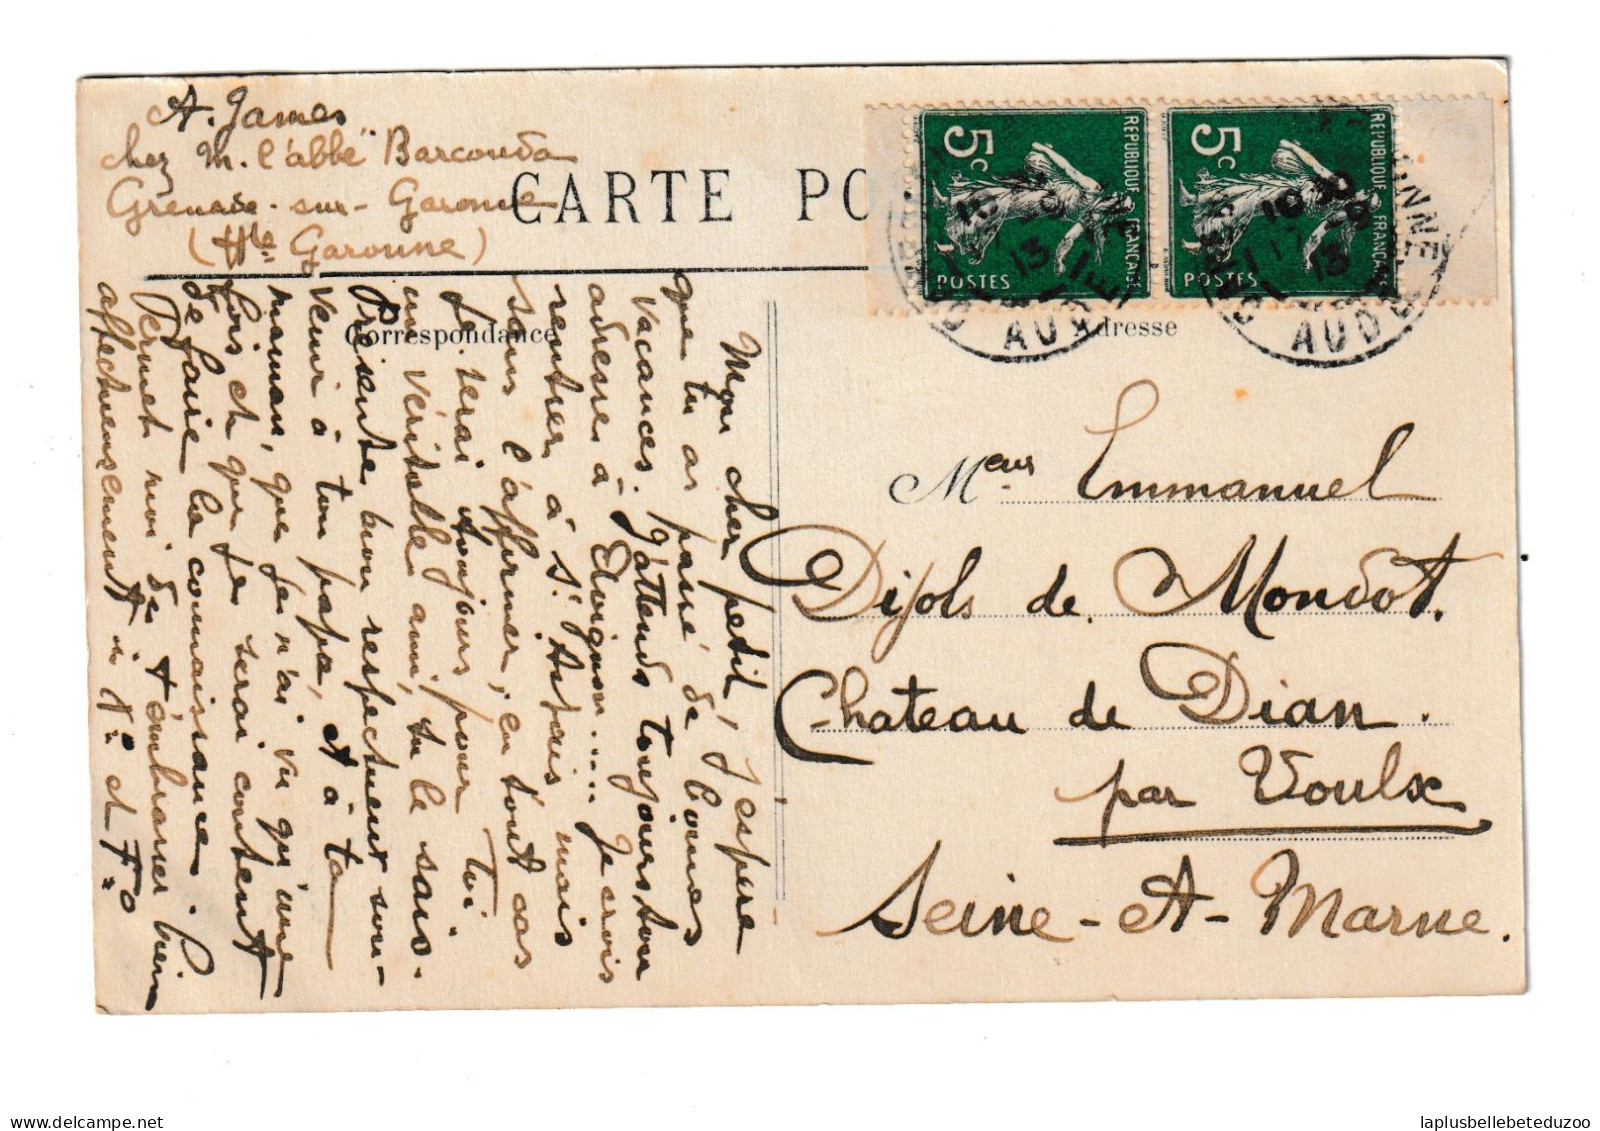 A. James
chez M. l'abbé Barcouda
Grenade-sur-Garonne
(Hte Garonne)
CARTE PO
Correspondance
Adresse
REPUBLIQUE FRANÇAISE
5c
POSTES
REPUBLIQUE FRANÇAISE
5c
POSTES
10 30
13
AUDE
Mon cher petit, J'espère
que tu as passé de bonnes
vacances. J'attends toujours ton
adresse à Avignon..... Je crois
rentrer à St. Aspais mais
sans l'affirmer; en tout cas
Je serai toujours pour Toi
un véritable ami, tu le sais.
Présente mon respectueux sou-
venir à ton papa, et à ta
maman, que je n'ai vu qu'une
fois et que je serai content
de faire la connaissance.
Permet moi de t'embrasser bien
affectueusement
Meur Emmanuel
Dijols de Mondot.
Chateau de Dian.
par Voulx
Seine-et-Marne.
laplusbellebeteduzoo